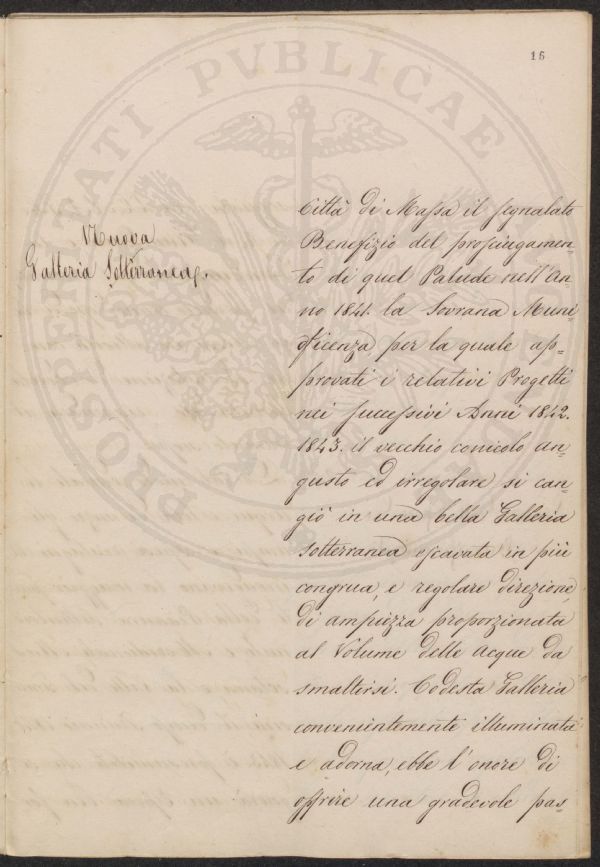 16
PROSPERITATI PVBLICAE
Nuova
Galleria Sotterranea.
Città di Massa il segnalato
Benefizio del prosciugamen=
to di quel Palude nell'An
no 1841. la Sovrana Muni
ficenza, per la quale ap=
provati i relativi Progetti
nei successivi Anni 1842.
1843. il vecchio conicolo an=
gusto ed irregolare si can=
giò in una bella Galleria
sotterranea escavata in più
congrua, e regolare direzione,
di ampiezza proporzionata
al Volume delle acque da
smaltirsi. Codesta Galleria
convenientemente illuminata
e adorna, ebbe l'onore di
offrire una gradevole pas=